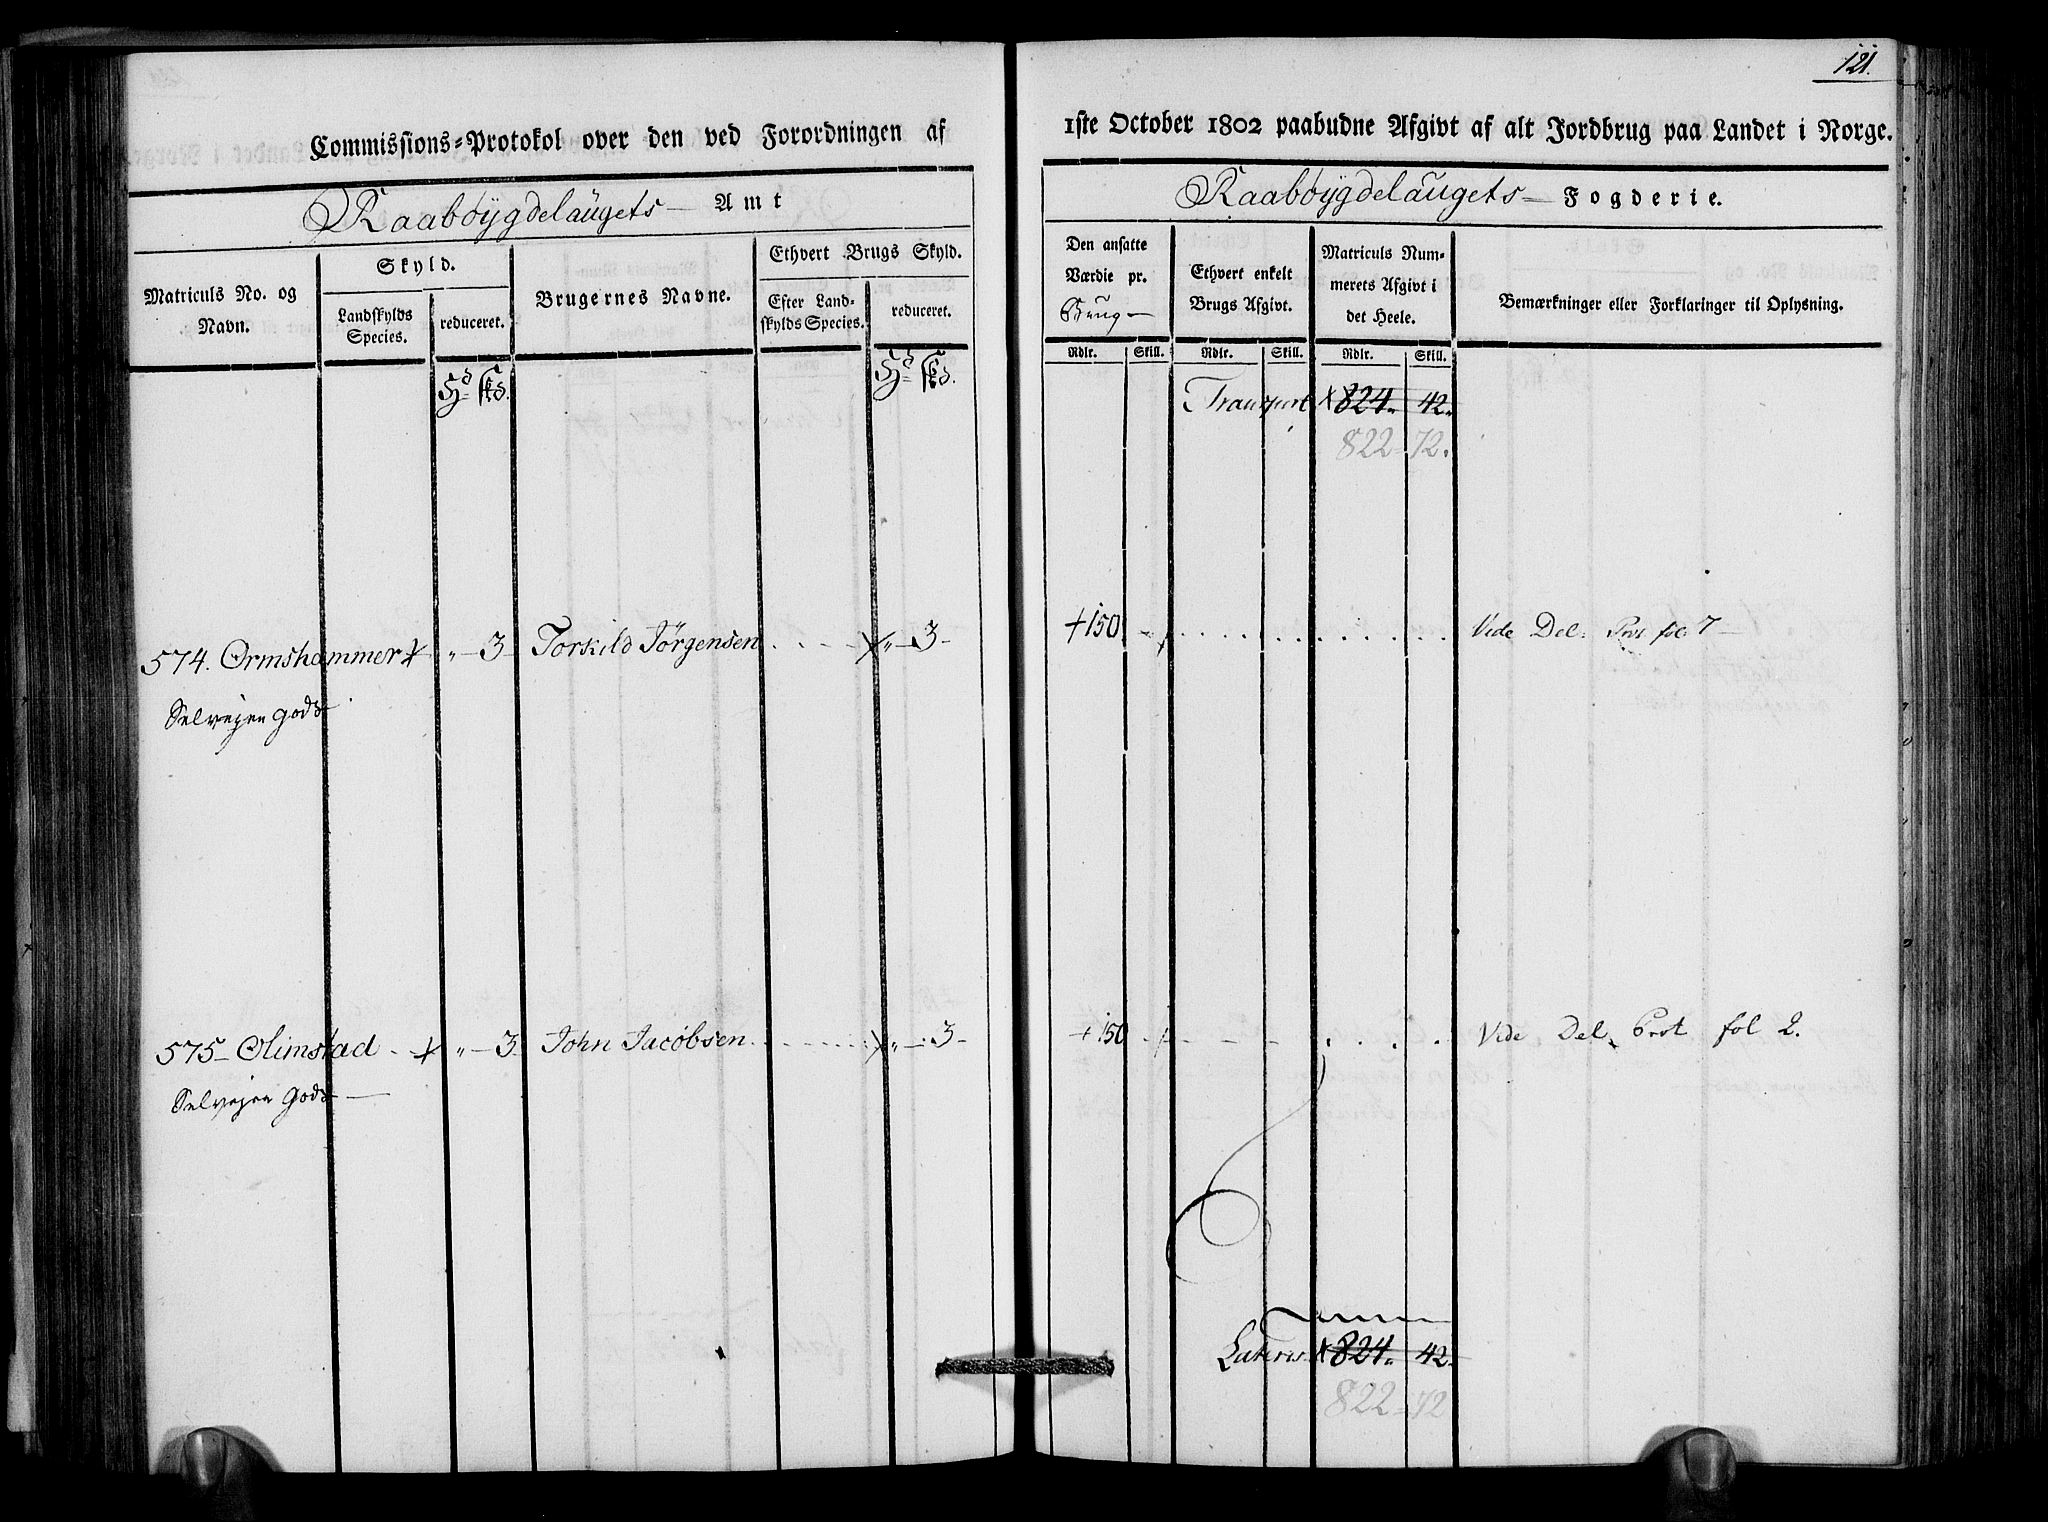 121.
Commissions=Protokol over den ved Forordningen af
1ste October 1802 paabudne Afgivt af alt Jordbrug paa Landet i Norge.
Raabøygdelaugets Amt
Raabøygdelaugets Fogderie.
Matriculs No. og
Navn.
Skyld.
Landskylds
Species.
reduceret.
Brugernes Navne.
Ethvert Brugs Skyld.
Efter Land=
skylds Species.
reduceret.
Den ansatte
Værdie pr.
Brug
Ethvert enkelt
Brugs Afgivt.
Matriculs Num=
merets Afgivt i
det Heele.
Bemærkninger eller Forklaringer til Oplysning.
Rdlr. Skill. Rdlr. Skill. Rdlr. Skill.
Transport 824. 42.
822 72.
574. Ormshammer " 3 Torkild Jørgensen " 3 +150 Vide Del: Prot fol 7
Selvejer gods
575 Olimstad " 3 John Jacobsen " 3 +150 Vide Del. Prot fol 2.
Selvejer Gods
Lateris 824. 42.
822 72